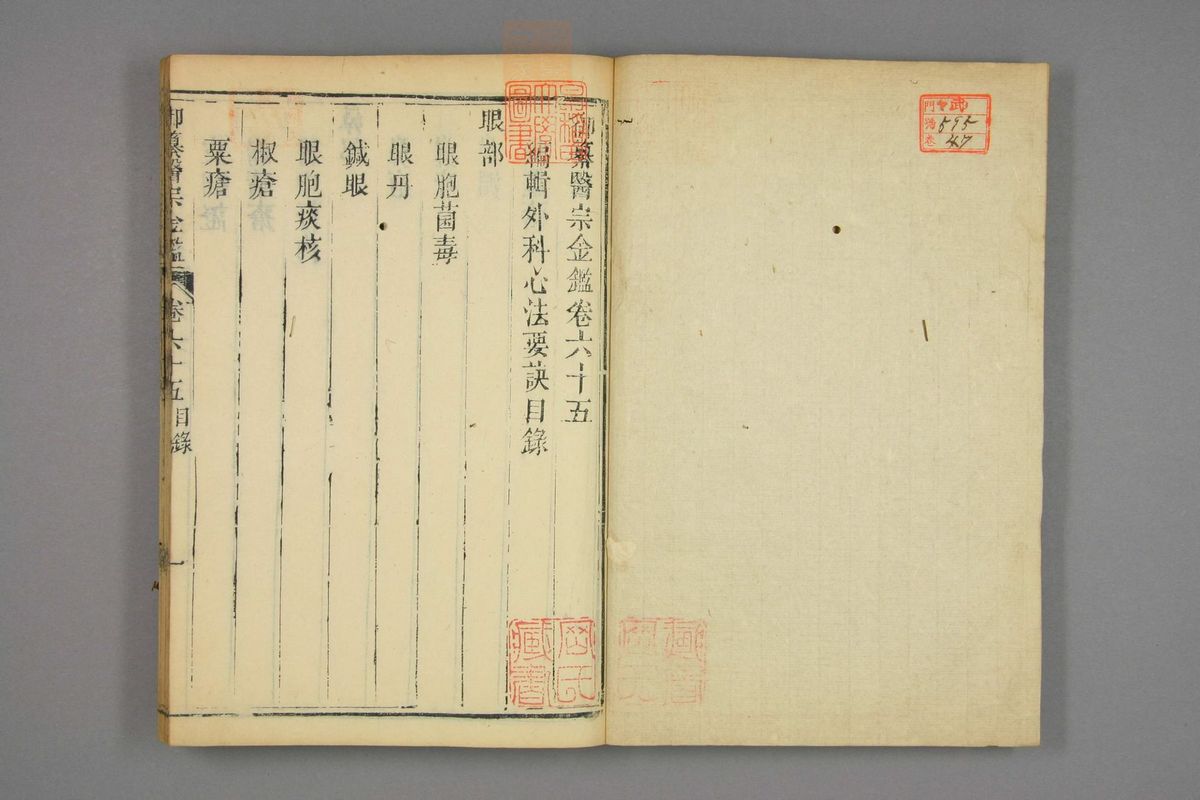 御纂醫宗金鑑卷六十五
編輯外科心法要訣目錄
眼部
眼胞菌毒
眼丹
鍼眼
眼胞痰核
椒瘡
粟瘡
御纂醫宗金鑑
卷六十五目錄
一
門
號 595
卷 47
圖書
藏書